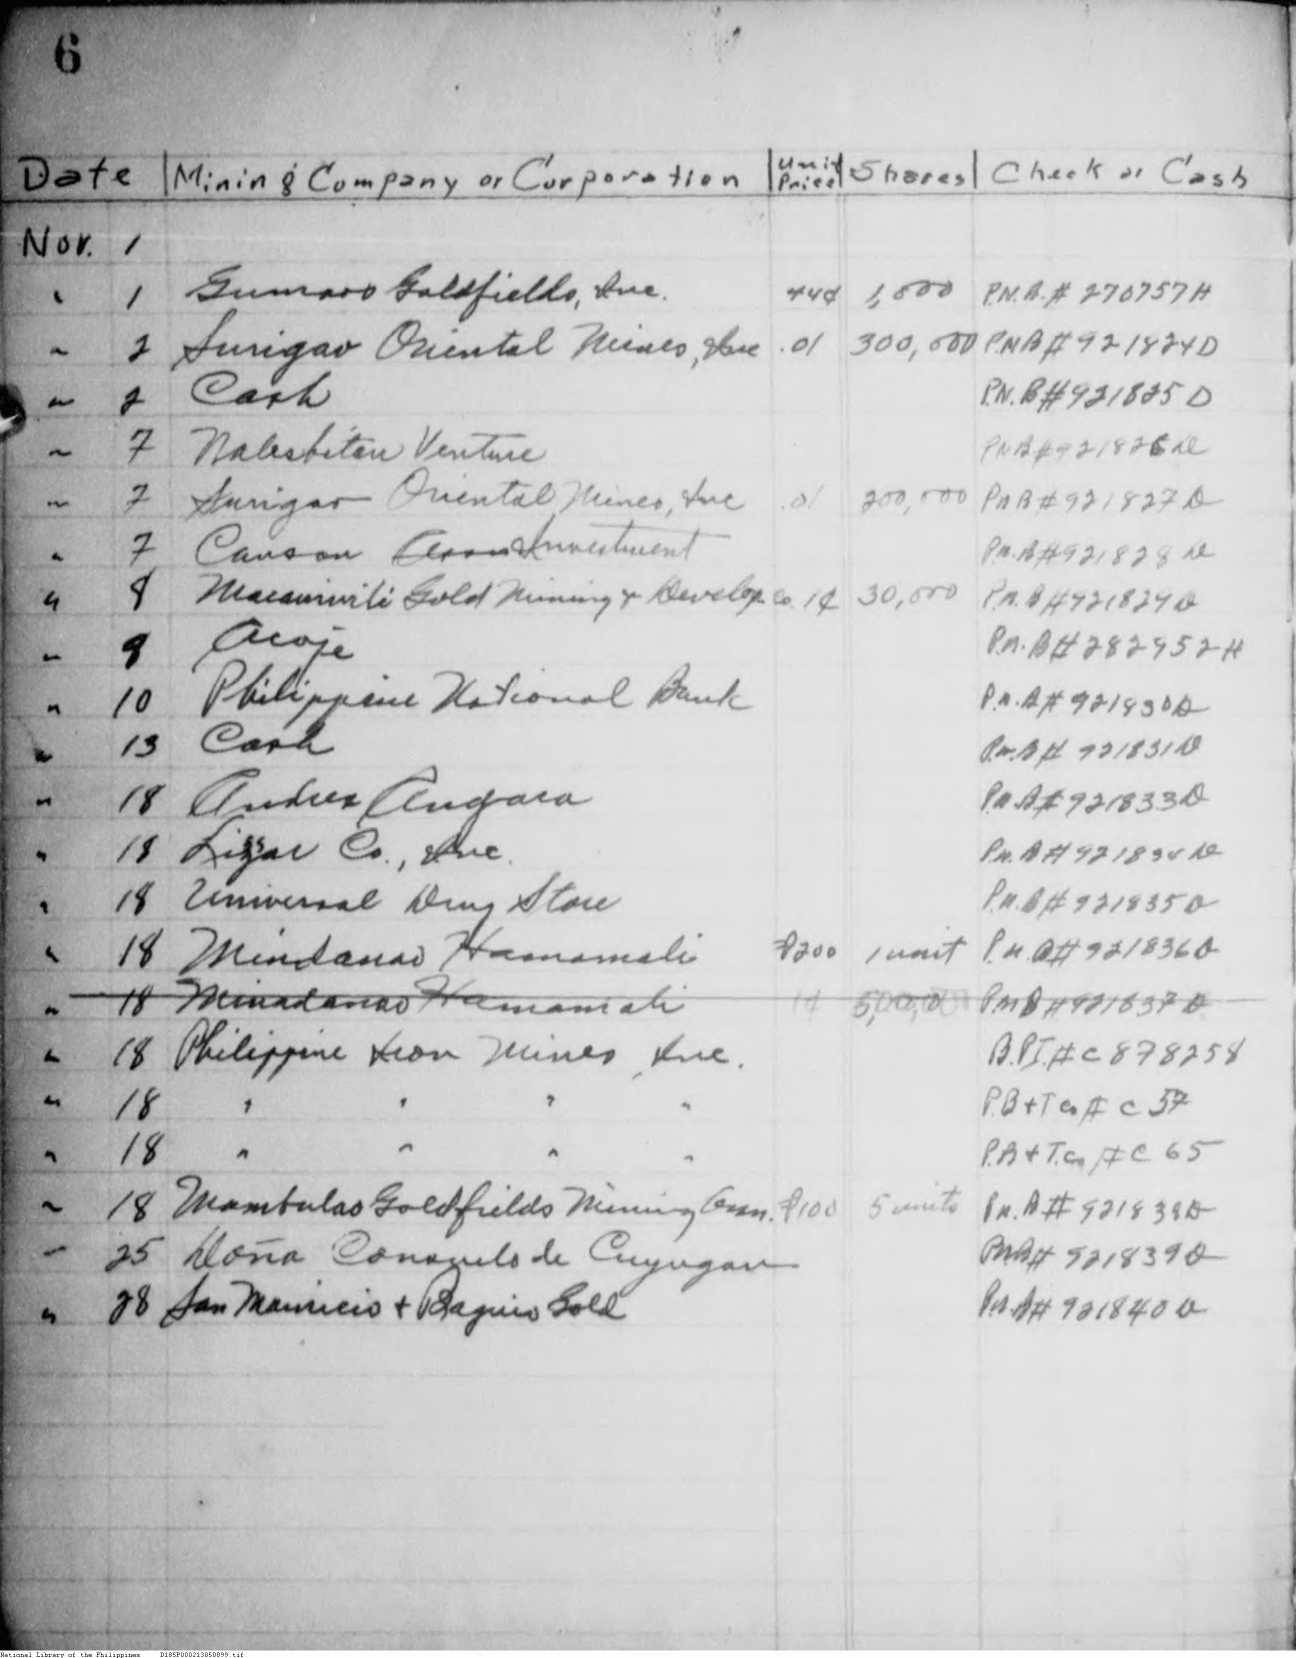 6
Date Mining Company or Corporation Unit Price Shares Check or Cash
Nov. 1
" 1 Gumaos Goldfields, Inc. 44¢ 1,000 P.N.B.# 270757H
" 2 Surigao Oriental Mines, Inc .01 300,000 P.N.B# 921824D
" 2 Cash P.N.B# 921825 D
" 7 Nalesbitan Venture P.N.B# 921826 D
" 7 Surigao Oriental Mines, Inc .01 200,000 P.N.B# 921827 D
" 7 Canson Investment P.N.B# 921828 D
" 8 Gold Mining & Develop. Co. 1¢ 30,000 P.N.B# 921829 D
" 9 Acoje P.N.B# 282952 H
" 10 Philippine National Bank P.N.B# 921830 D
" 13 Cash P.N.B# 921831 D
" 18 Andres Angara P.N.B# 921833 D
" 18 Co., Inc. P.N.B# 921834 D
" 18 Universal Drug Store P.N.B# 921835 D
" 18 Mindanao Hamamali ₱200 1 unit P.N.B# 921836 D
" 18 Minadanao Hamamali 1¢ P.N.B# 921837 D
" 18 Philippine Iron Mines, Inc. B.P.I.# C 878258
" 18 " " " " P.B+T Co # C 57
" 18 " " " " P.B+T.Co # C 65
" 18 Mambulao Goldfields Mining ₱100 5 units P.N.B# 921838 D
" 25 Doña Consuelo de Cuyugan P.N.B# 921839 D
" 28 San Mauricio + Baguio Gold P.N.B# 921840 D
National Library of the Philippines D185P000213050099.tif